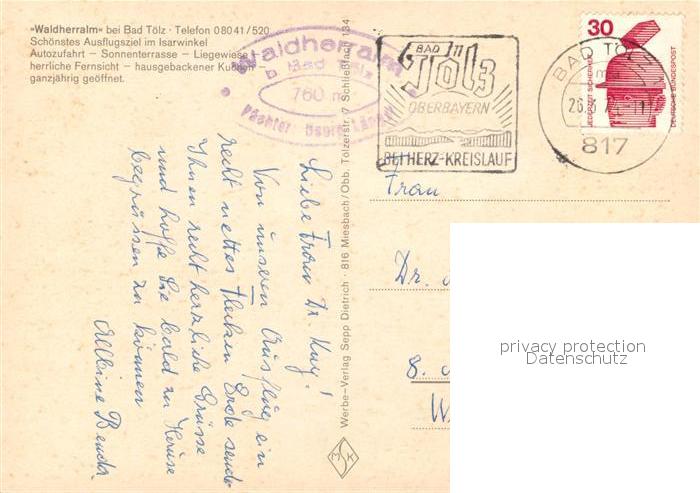 »Waldherralm« bei Bad Tölz · Telefon 08041/520
Schönstes Ausflugsziel im Isarwinkel
Autozufahrt — Sonnenterrasse — Liegewiese
herrliche Fernsicht — hausgebackener Kuchen
ganzjährig geöffnet.
Waldherralm
b. Bad Tölz
760 m
Pächter:
BAD
in Tölz
OBERBAYERN
BEI HERZ-KREISLAUF
BAD TÖLZ
26.
817
30
JEDERZEIT SICHERHEIT
DEUTSCHE BUNDESPOST
Werbe-Verlag Sepp Dietrich · 816 Miesbach/Obb. Tölzerstr. 7 Schließfach 134
MSK
Liebe Frau Dr. Kuy!
Von unserem Ausflug ein
recht nettes Flecken Erde sende
Ihnen recht herzliche Grüsse
und hoffe Sie bald zu Hause
begrüssen zu können
Albine Bender
Frau
Dr.
8.
W
privacy protection
Datenschutz